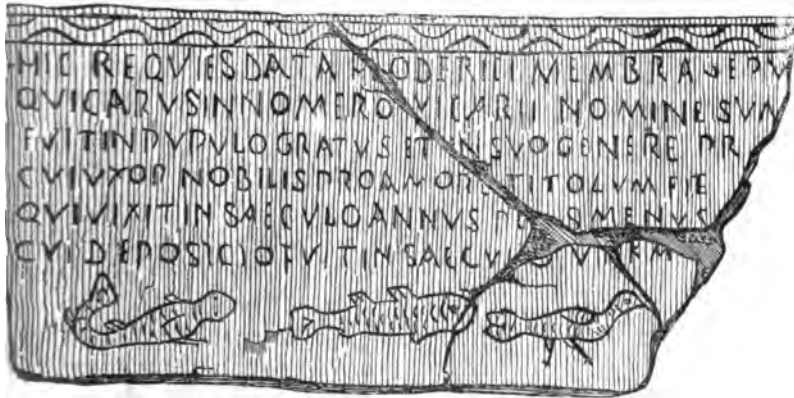 HIC REQVIES DATA HLODERICI MEMBRA SEPV
QVI CARVS IN NOMERO VICARII NOMINE SVM
FVIT IN PVPVLO GRATVS ET IN SVO GENERE PR
CVI VXOR NOBILIS PRO AMORE TITOLVM FIE
QVI VIXIT IN SAECVLO ANNVS MENVS
CVI DEPOSICIO FVIT IN